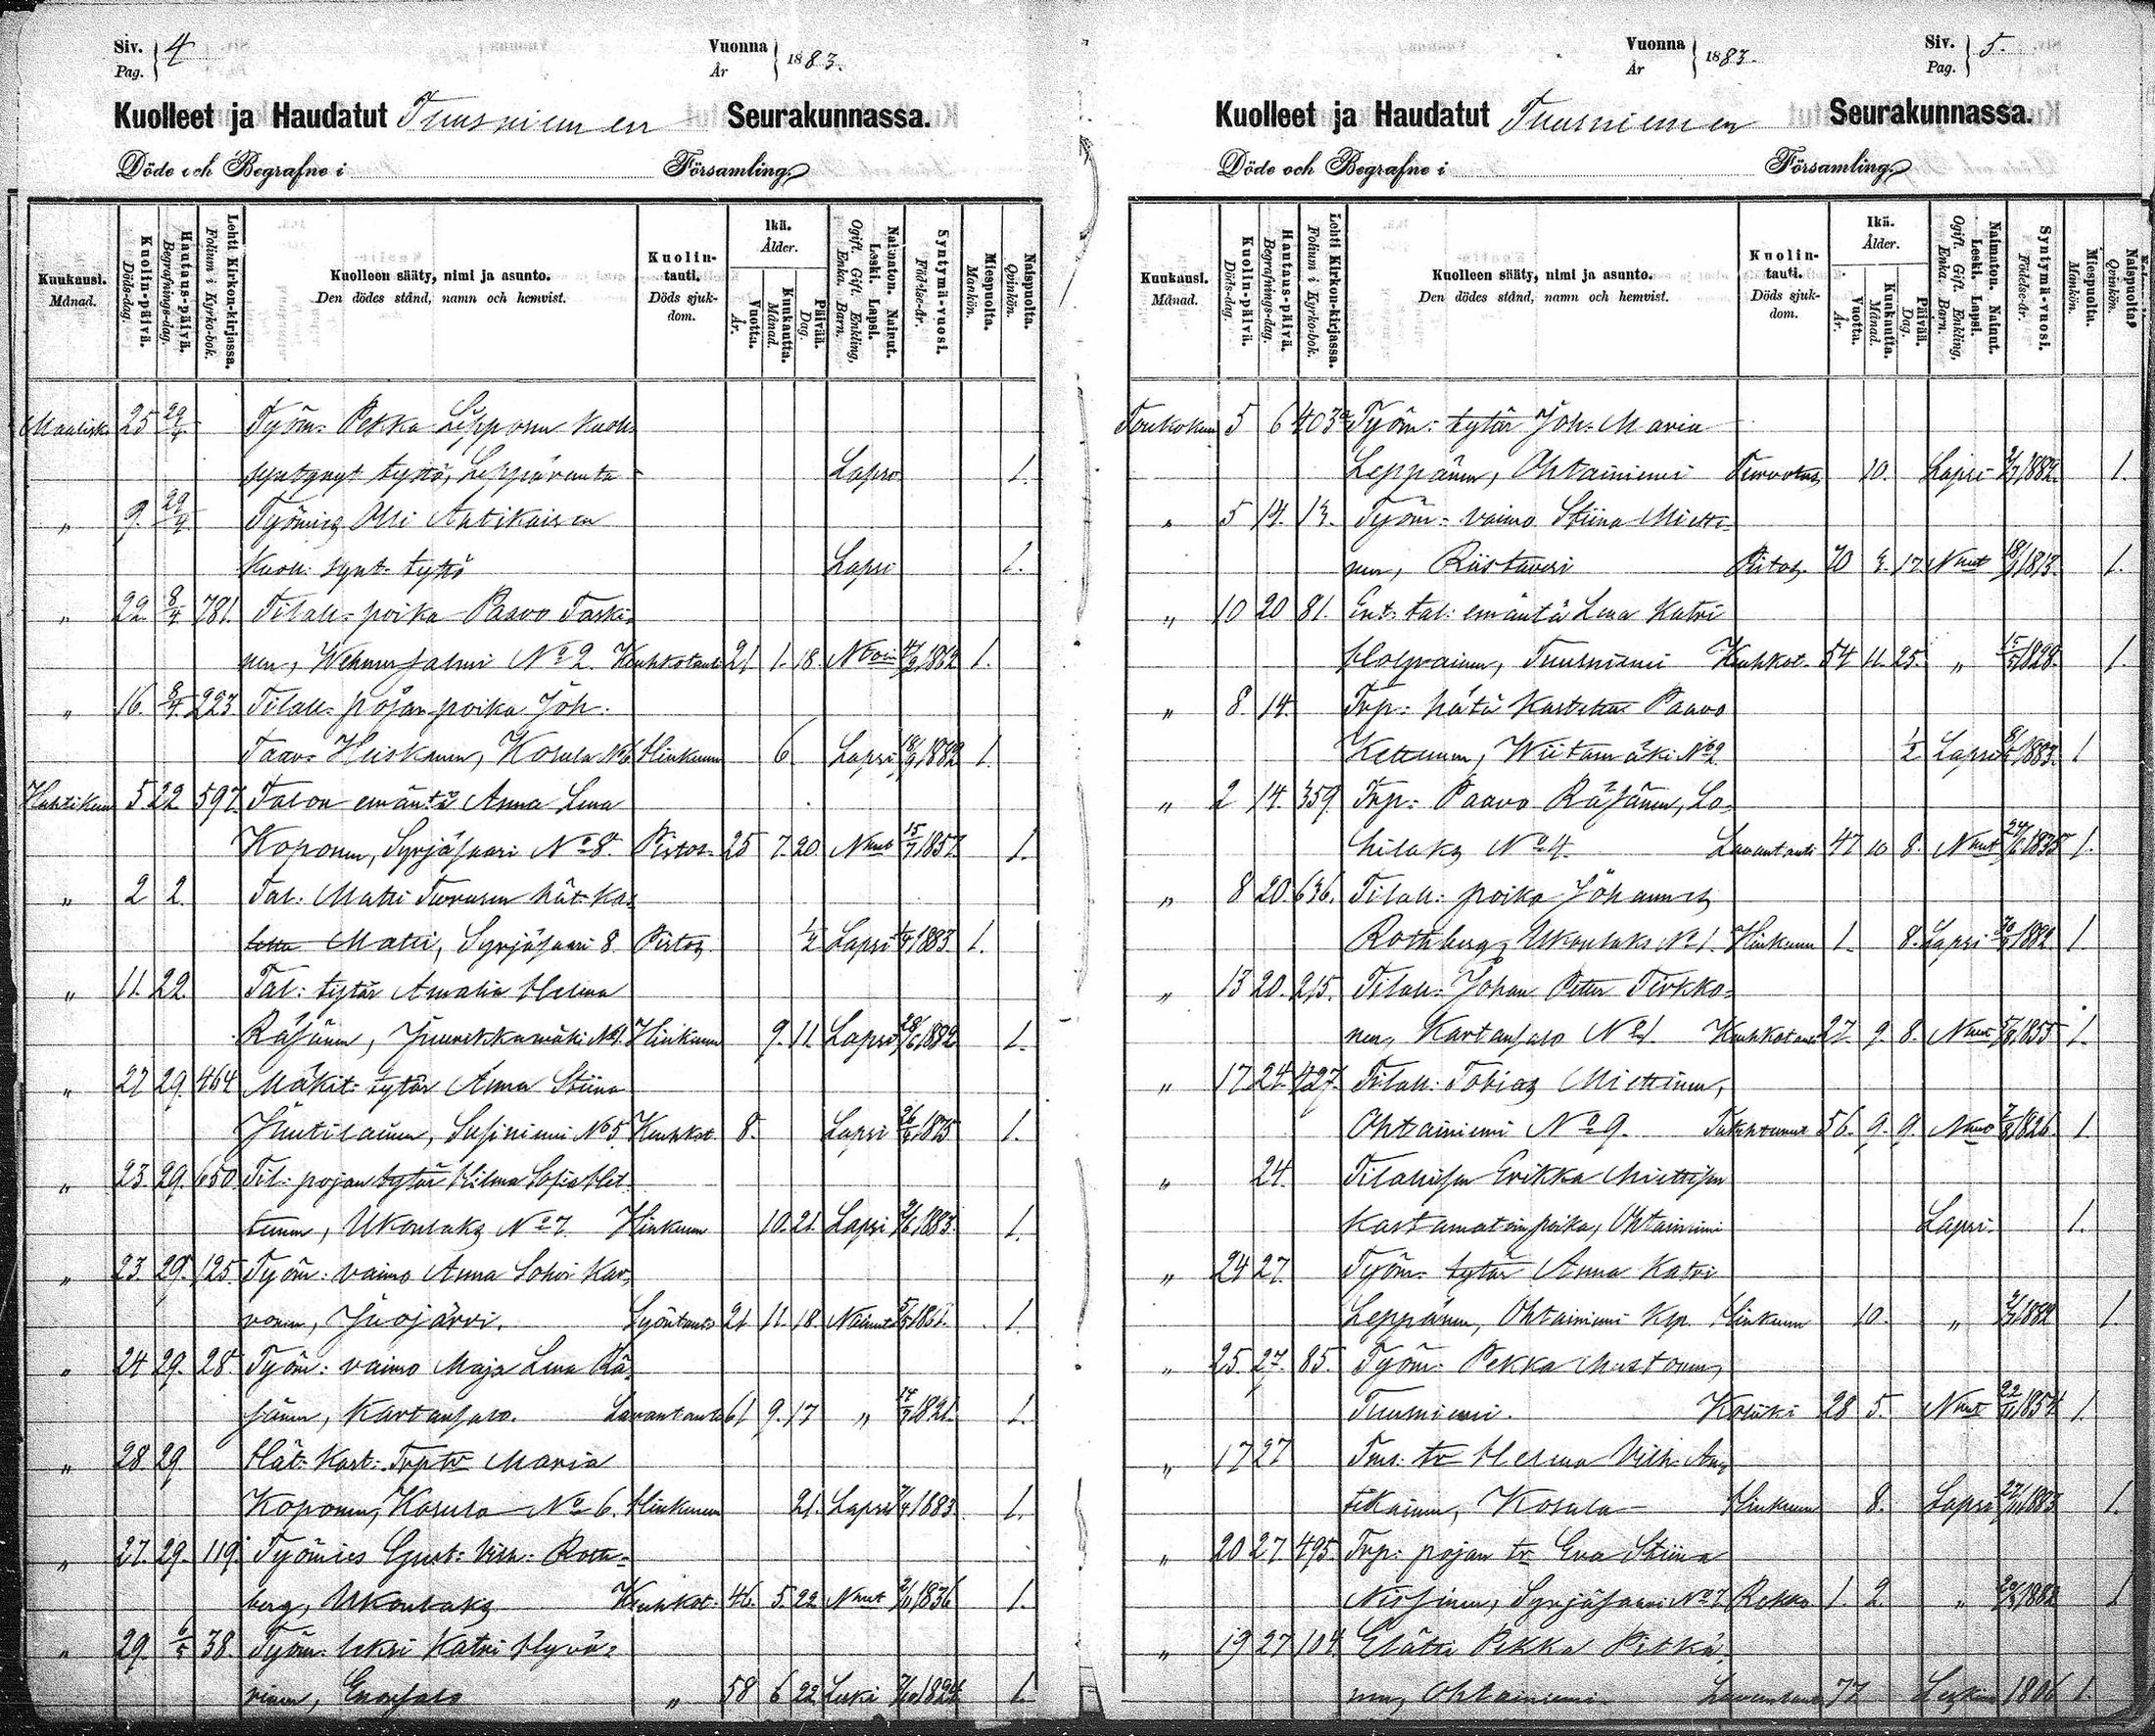 Siv. Pag. 4
Vuonna År 1883.
Kuolleet ja Haudatut Tuusniemen Seurakunnassa.
Döde och Begrafne i Församling.
Kuukausi. Månad.
Kuolin-päivä. Döds-dag.
Hautaus-päivä. Begrafnings-dag.
Lehti Kirkon-kirjassa. Folium i Kyrko-bok.
Kuolleen sääty, nimi ja asunto. Den dödes stånd, namn och hemvist.
Kuolin-tauti. Döds sjuk-dom.
Ikä. Ålder.
Vuotta. År.
Kuukautta. Månad.
Päivää. Dag.
Naimaton. Nainut. Leski. Lapsi. Ogift. Gift. Enkling, Enka. Barn.
Syntymä-vuosi. Födelse-år.
Miespuolta. Mankön.
Naispuolta. Qvinkön.
Maalisk. 25 29/4 Työm: Pekka Lepposen kuoll.
syntynyt tyttö, Leppäranta Lapsi 1.
" 9. 29/4 Työmies Olli Antikaisen
Kuoll: synt. tyttö Lapsi 1.
" 22. 8/4 781. Tilall: poika Paavo Taski-
nen, Wehmersalmi No 2. Keuhkotauti 21 1. 18. 1862 1.
" 16. 8/4 223 Tilall: pojan poika Joh.
Taav. Heiskanen, Kosula No 6 Hinkunen 6 Lapsi 1882 1.
Huhtikuu 5 22 597. Talon emäntä Anna Lena
Koponen, Syrjäsaari No 8. Pistos. 25 7. 20. Nnut 15/7 1857. 1.
" 2 2. Tal. Matti Turusen hät. kas-
Matti, Syrjäsaari 8. Pistos ½ Lapsi 1/4 1883 1.
" 11. 22. Tal: tytär Amalia Helena
Räsänen, Juurikkamäki No 1. Hinkunen 9. 11. Lapsi 1882 1.
" 27 29. 464 Mäkit: tytär Anna Stiina
Juutilainen, Susiniemi No 5 Keuhkot. 8. Lapsi 1875 1.
" 23. 29. 650 Til: pojan tytär Hilma Sofia Hit-
tunen, Ukonlaks No 7. Hinkunen 10. 21. Lapsi 1883. 1.
" 23. 29. 125 Työm: vaimo Anna Sohvi Kar-
vonen, Juojärvi. Syöntauti 21. 11. 18. 1861. 1.
" 24 29. 28. Työm: vaimo Maja Lena Rä-
sänen, Kartansalo. Lavantauti 61 9. 17 " 14/7 1821. 1.
" 28. 29 Hät: Kast: Trp tr Maria
Koponen, Kosula No 6. Hinkunen 21. Lapsi 7/4 1883. 1.
" 27. 29. 119. Työmies Gust: Vilh: Roth-
berg, Ukonlaks Keuhkot. 46. 5. 22 Nnut 1836 1.
" 29. 6/5 38. Työm: leski Katri Hyvä-
rinen, Enonsalo " 58 6 22 Leski 1824 1.
Siv. Pag. 5.
Vuonna År 1883.
Kuolleet ja Haudatut Tuusniemen Seurakunnassa.
Döde och Begrafne i Församling.
Kuukausi. Månad.
Kuolin-päivä. Döds-dag.
Hautaus-päivä. Begrafnings-dag.
Lehti Kirkon-kirjassa. Folium i Kyrko-bok.
Kuolleen sääty, nimi ja asunto. Den dödes stånd, namn och hemvist.
Kuolin-tauti. Döds sjuk-dom.
Ikä. Ålder.
Vuotta. År.
Kuukautta. Månad.
Päivää. Dag.
Naimaton. Nainut. Leski. Lapsi. Ogift. Gift. Enkling, Enka. Barn.
Syntymä-vuosi. Födelse-år.
Miespuolta. Mankön.
Naispuolta. Qvinkön.
Toukokuu 5 6 403 Työm: tytär Joh. Maria
Leppänen, Ohtainiemi Turvotus 10. Lapsi 1882. 1.
" 5 14. 13. Työm: vaimo Stiina Mietti-
nen, Riistaveri Pistos 70 3. 17. Nnut 1813. 1.
" 10 20 81. Ent: tal: emäntä Lena Katri
Holopainen, Tuusniemi Keuhkot. 54 11. 25. " 1828. 1.
" 8. 14. Trp: hätä Kastettu Paavo
Kettunen, Wiitamäki No 2 ½ Lapsi 1883. 1
" 2 14. 359. Trp: Paavo Räsänen, Lo-
hilaks No 4. Lavantauti 47 10 8. Nnut 1835 1.
" 8 20. 636. Tilall: poika Johannes
Rothberg, Ukonlaks No 1. Hinkunen 1. 8. Lapsi 1882 1
" 13 20. 215. Tilall: Johan Petter Tirkko-
nen, Kartansalo No 1. Keuhkotauti 27. 9. 8. Nnut 1855 1.
" 17 24. 427. Tilall: Tobias Miettinen,
Ohtainiemi No 9. 56. 9. 9. 1826. 1.
" 24. Tilallisen Erikka Miettisen
kastamatoin poika, Ohtainiemi Lapsi. 1.
" 24 27. Työm: tytär Anna Katri
Leppänen, Ohtainiemi Hinkunen 10. " 1882 1.
" 25. 27. 85. Työm: Pekka Mustonen,
Tuusniemi. Koliiki 28 5. Nnut 22/11 1854. 1.
" 17 27 Tms: tr Helena Vilh: An-
tikainen, Kosula Hinkunen 8. Lapsi 1883 1.
" 20 27. 495. Trp: pojan tr Eva Stiina
Nissinen, Syrjäsaari No 7 Rokko 1. 2. " 1882 1
" 19 27 104. Elätti Pekka Pitkä-
nen, Ohtainiemi Lavantauti 77 Leski 1806 1.